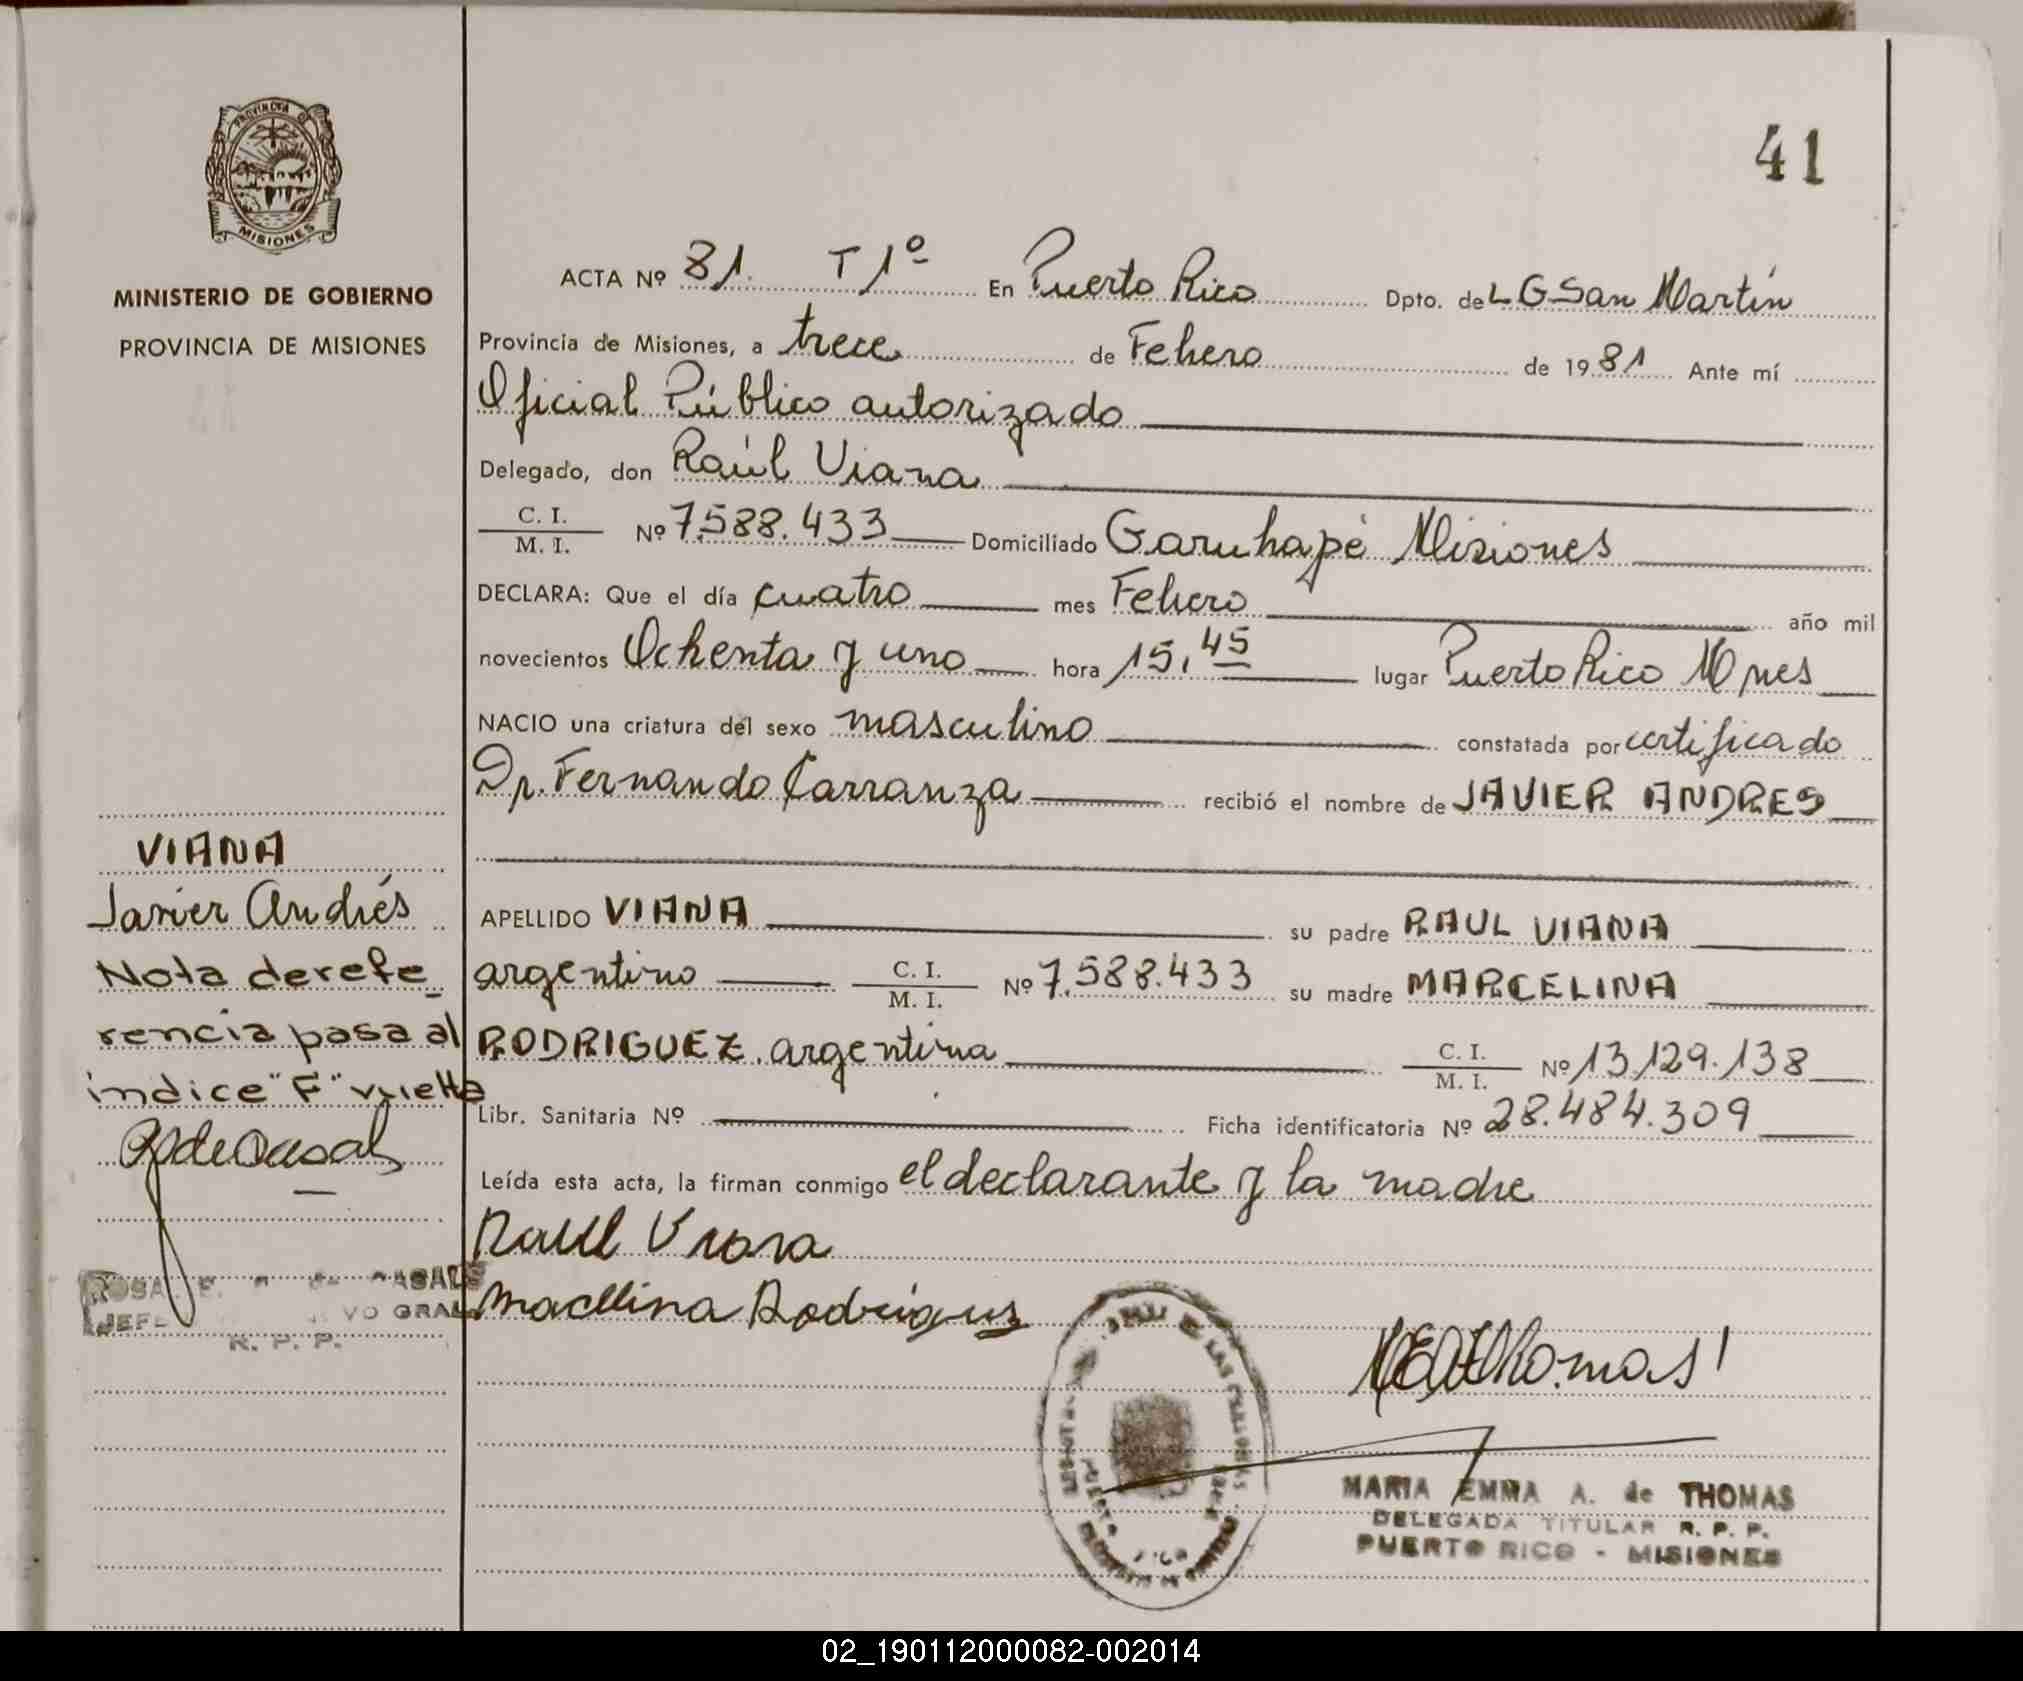 41
PROVINCIA DE
MISIONES
MINISTERIO DE GOBIERNO
PROVINCIA DE MISIONES
ACTA Nº 81. T 1º En Puerto Rico Dpto. de L G San Martín
Provincia de Misiones, a trece de Febrero de 1981 Ante mí
Oficial Público autorizado
Delegado, don Raúl Viana
C. I. / M. I. Nº 7.588.433 Domiciliado Garuhapé Misiones
DECLARA: Que el día cuatro mes Febrero año mil
novecientos Ochenta y uno hora 15,45 lugar Puerto Rico Mnes
NACIO una criatura del sexo masculino constatada por certificado
Dr. Fernando Carranza recibió el nombre de JAVIER ANDRES
APELLIDO VIANA su padre RAUL VIANA
argentino C. I. / M. I. Nº 7.588.433 su madre MARCELINA
RODRIGUEZ argentina C. I. / M. I. Nº 13.129.138
Libr. Sanitaria Nº Ficha identificatoria Nº 28.484.309
Leída esta acta, la firman conmigo el declarante y la madre
Raul Viana
Macllina Rodrigus
VIANA
Javier Andrés
Nota de refe_
rencia pasa al
indice "F" vuelta
VO GRAL
R. P. P.
DE LAS PERSONAS
MARIA EMMA A. de THOMAS
DELEGADA TITULAR R. P. P.
PUERTO RICO - MISIONES
02_190112000082-002014